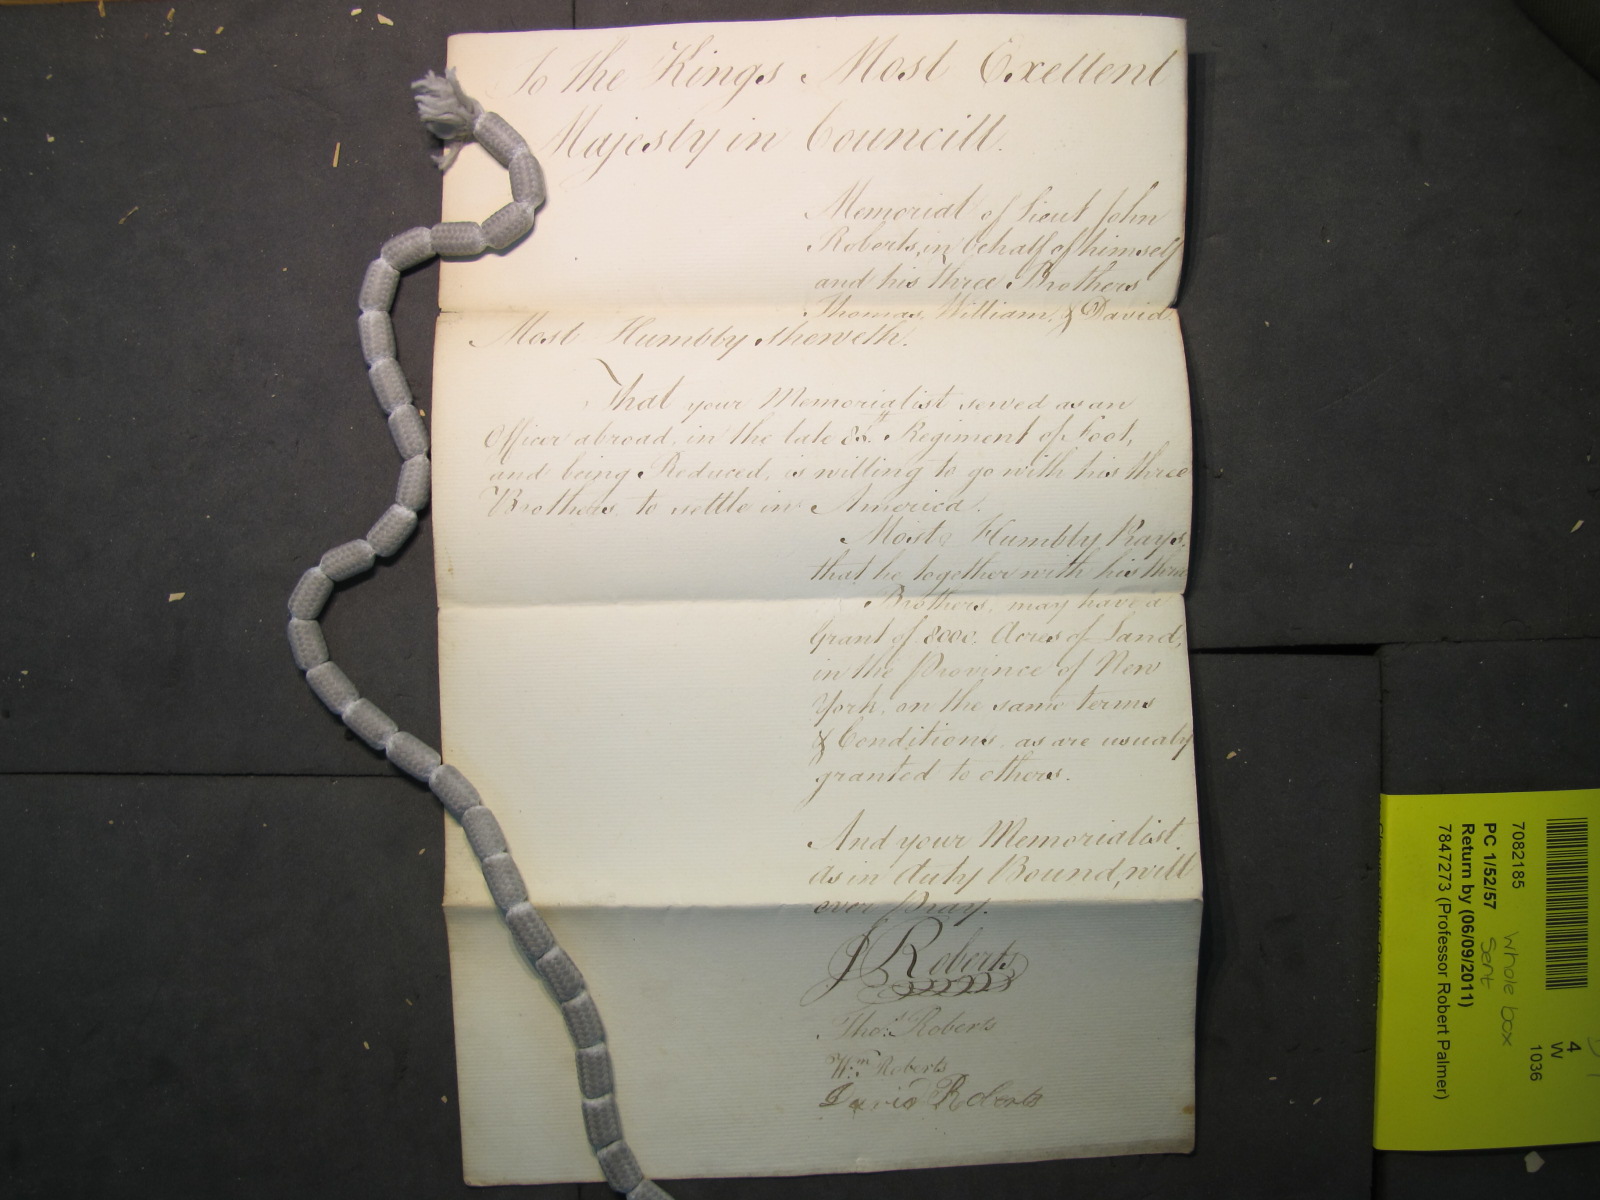 To the Kings Most Exellent
Majesty in Councill.
Memorial of Lieut John
Roberts, in behalf of himself
and his three Brothers
Thomas, William, & David.
Most Humbly Sheweth.
That your Memorialist served as an
Officer abroad, in the late 85th Regiment of Foot,
and being Reduced, is willing to go with his three
Brothers, to settle in America.
Most Humbly Prays.
that he together with his three
Brothers, may have a
Grant of 8000. Acres of Land,
in the Province of New
York, on the same terms
& Conditions, as are usualy
granted to others.
And your Memorialist.
as in duty Bound, will
ever Pray.
J Roberts
Thos. Roberts
Wm. Roberts
David Roberts
4
W
1036
7082185
PC 1/52/57
Return by (06/09/2011)
7847273 (Professor Robert Palmer)
Whole box
Sent